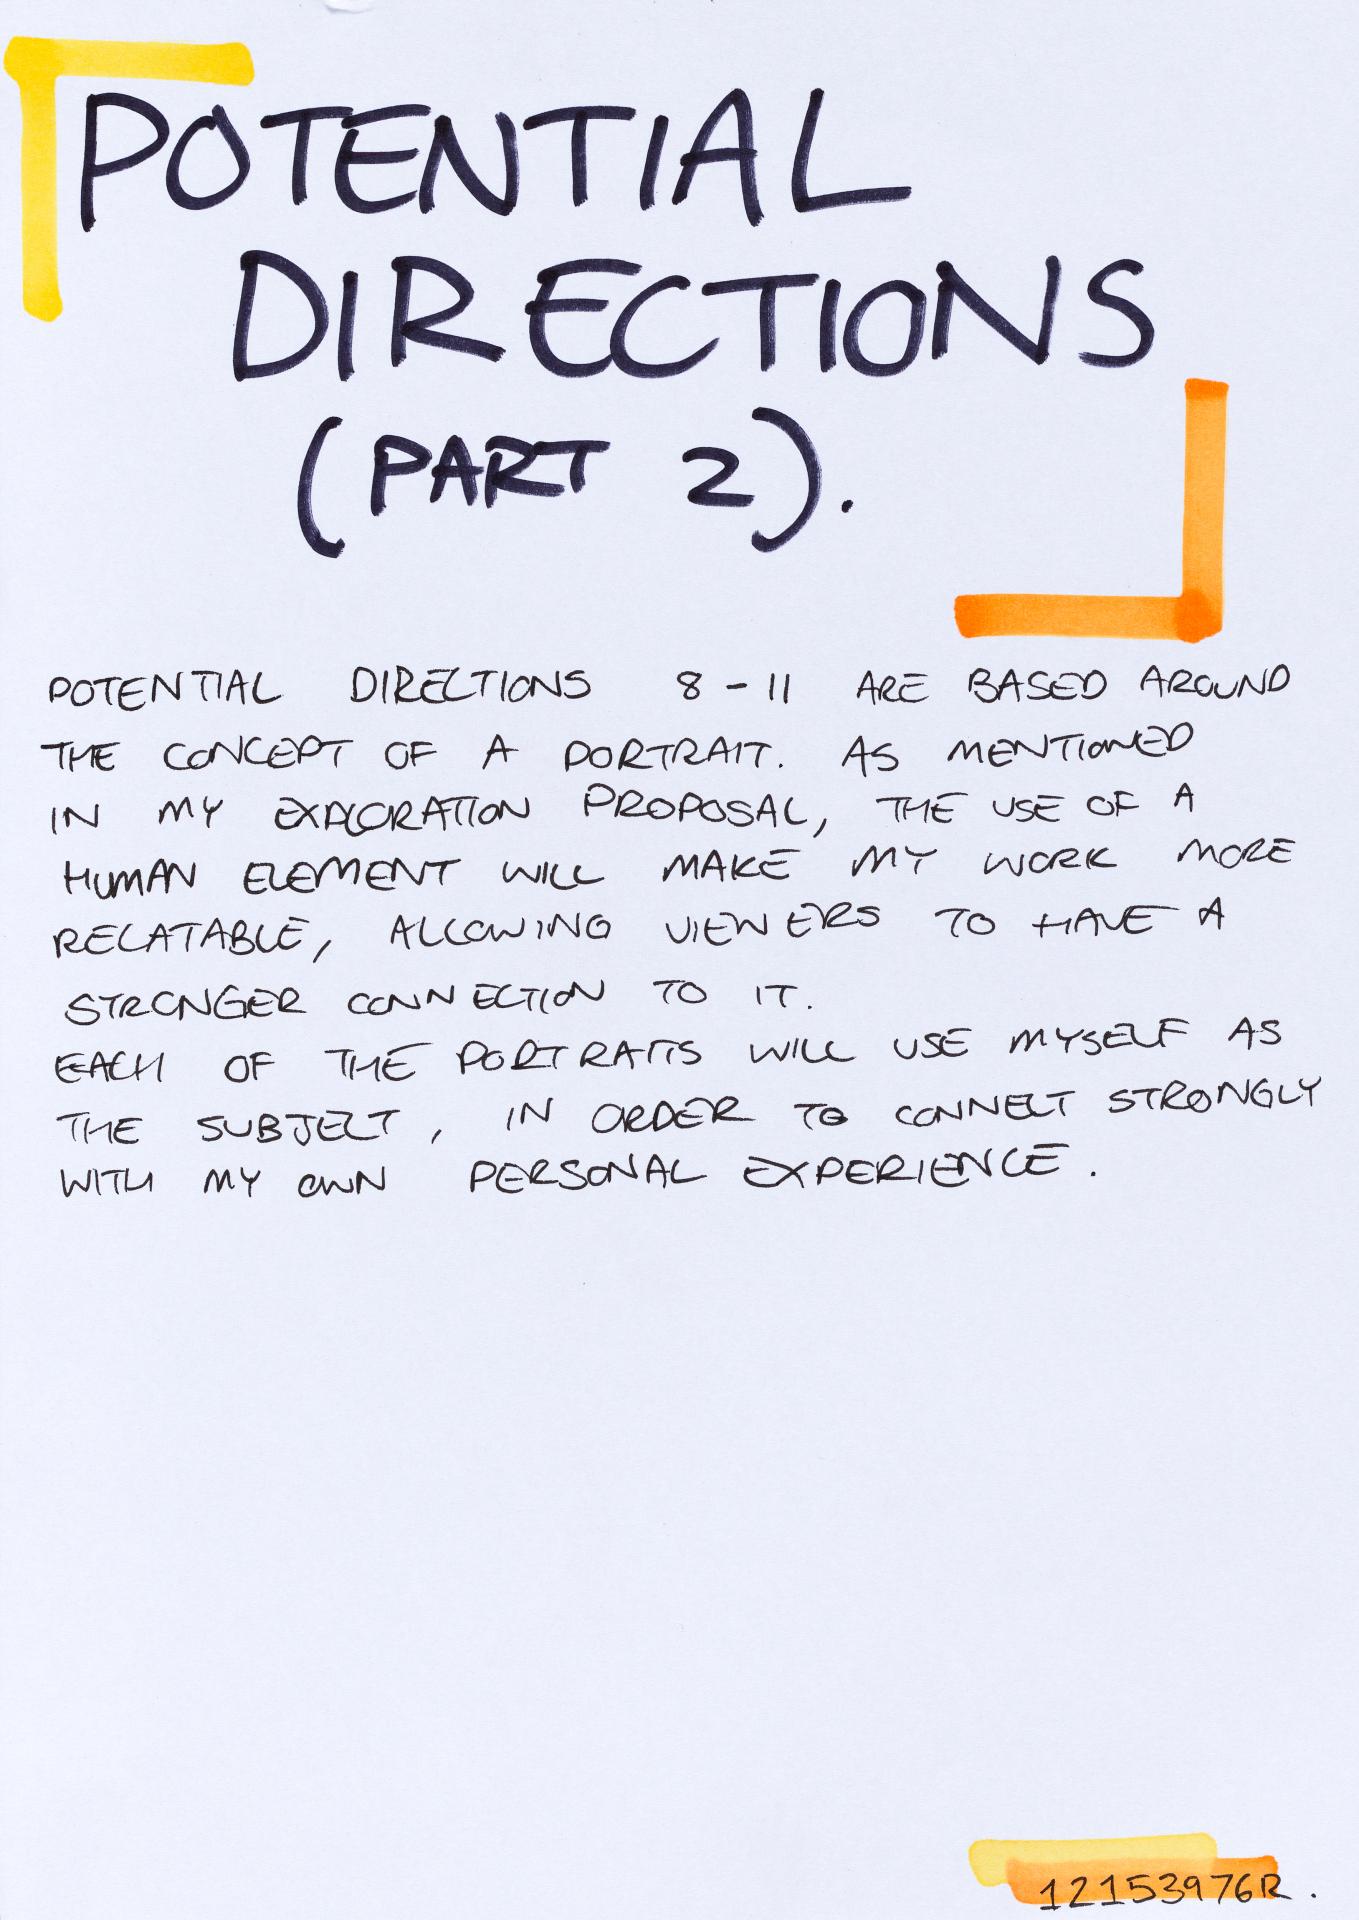 POTENTIAL
DIRECTIONS
(PART 2).
POTENTIAL DIRECTIONS 8-11 ARE BASED AROUND
THE CONCEPT OF A PORTRAIT. AS MENTIONED
IN MY EXPLORATION PROPOSAL, THE USE OF A
HUMAN ELEMENT WILL MAKE MY WORK MORE
RELATABLE, ALLOWING VIEWERS TO HAVE A
STRONGER CONNECTION TO IT.
EACH OF THE PORTRAITS WILL USE MYSELF AS
THE SUBJECT, IN ORDER TO CONNECT STRONGLY
WITH MY OWN PERSONAL EXPERIENCE.
12153976R.